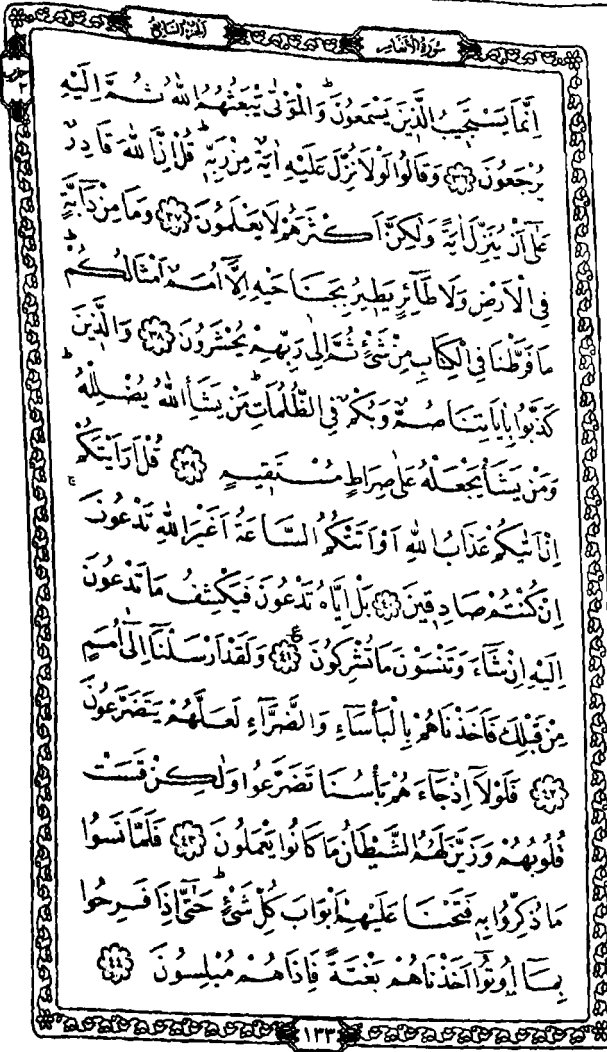 سُورَةُ الْاَنْعَامِ
اَلْجُزْءُ السَّابِعُ
اِنَّمَا يَسْتَجٖيبُ الَّذٖينَ يَسْمَعُونَۜ وَالْمَوْتٰى يَبْعَثُهُمُ اللّٰهُ ثُمَّ اِلَيْهِ
يُرْجَعُونَ ﴿٣٦﴾ وَقَالُوا لَوْلَا نُزِّلَ عَلَيْهِ اٰيَةٌ مِنْ رَبِّهٖۜ قُلْ اِنَّ اللّٰهَ قَادِرٌ
عَلٰٓى اَنْ يُنَزِّلَ اٰيَةً وَلٰكِنَّ اَكْثَرَهُمْ لَا يَعْلَمُونَ ﴿٣٧﴾ وَمَا مِنْ دَٓابَّةٍ
فِى الْاَرْضِ وَلَا طَٓائِرٍ يَطٖيرُ بِجَنَاحَيْهِ اِلَّٓا اُمَمٌ اَمْثَالُكُمْۜ
مَا فَرَّطْنَا فِى الْكِتَابِ مِنْ شَىْءٍ ثُمَّ اِلٰى رَبِّهِمْ يُحْشَرُونَ ﴿٣٨﴾ وَالَّذٖينَ
كَذَّبُوا بِاٰيَاتِنَا صُمٌّ وَبُكْمٌ فِى الظُّلُمَاتِۜ مَنْ يَشَاِ اللّٰهُ يُضْلِلْهُۜ
وَمَنْ يَشَاْ يَجْعَلْهُ عَلٰى صِرَاطٍ مُسْتَقٖيمٍ ﴿٣٩﴾ قُلْ اَرَاَيْتَكُمْ
اِنْ اَتٰيكُمْ عَذَابُ اللّٰهِ اَوْ اَتَتْكُمُ السَّاعَةُ اَغَيْرَ اللّٰهِ تَدْعُونَۚ
اِنْ كُنْتُمْ صَادِقٖينَ ﴿٤٠﴾ بَلْ اِيَّاهُ تَدْعُونَ فَيَكْشِفُ مَا تَدْعُونَ
اِلَيْهِ اِنْ شَٓاءَ وَتَنْسَوْنَ مَا تُشْرِكُونَ ﴿٤١﴾ وَلَقَدْ اَرْسَلْنَٓا اِلٰٓى اُمَمٍ
مِنْ قَبْلِكَ فَاَخَذْنَاهُمْ بِالْبَاْسَٓاءِ وَالضَّرَّٓاءِ لَعَلَّهُمْ يَتَضَرَّعُونَ
﴿٤٢﴾ فَلَوْلَٓا اِذْ جَٓاءَهُمْ بَاْسُنَا تَضَرَّعُوا وَلٰكِنْ قَسَتْ
قُلُوبُهُمْ وَزَيَّنَ لَهُمُ الشَّيْطَانُ مَا كَانُوا يَعْمَلُونَ ﴿٤٣﴾ فَلَمَّا نَسُوا
مَا ذُكِّرُوا بِهٖ فَتَحْنَا عَلَيْهِمْ اَبْوَابَ كُلِّ شَىْءٍۜ حَتّٰٓى اِذَا فَرِحُوا
بِمَٓا اُو۫تُٓوا اَخَذْنَاهُمْ بَغْتَةً فَاِذَا هُمْ مُبْلِسُونَ ﴿٤٤﴾
١٣٣